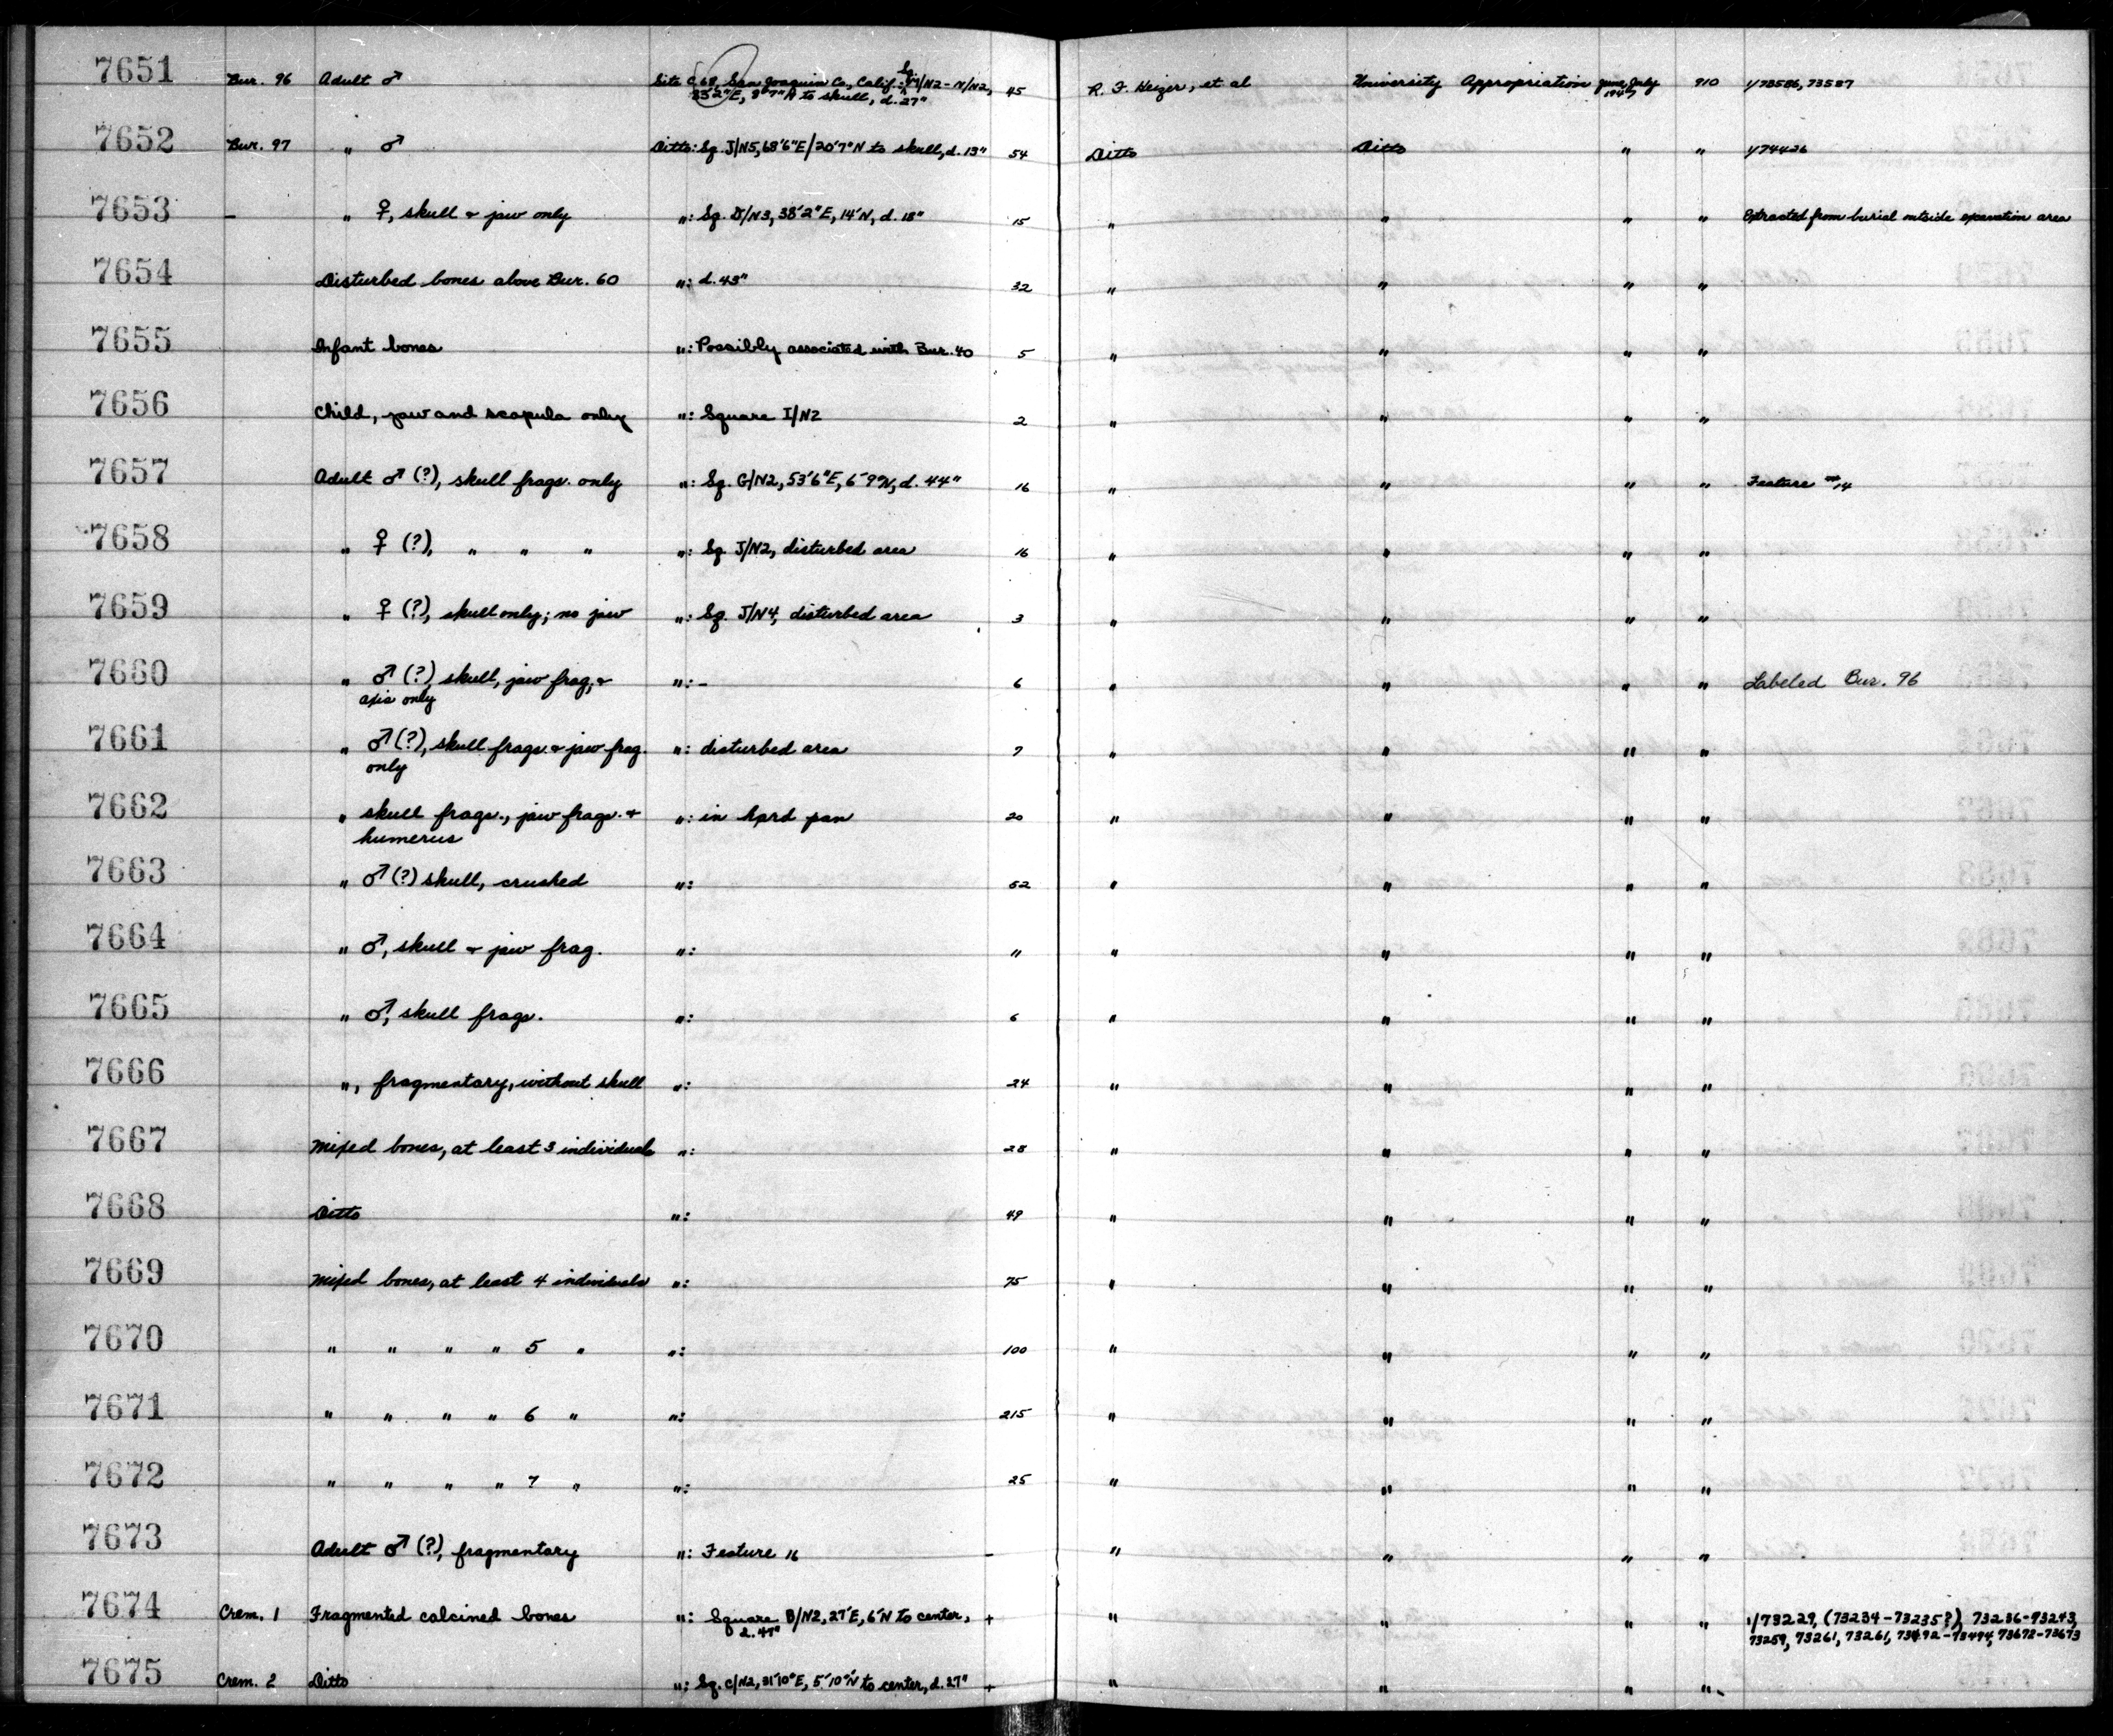 7651 Bur. 96 Adult ♂ Site C.68, San Joaquin Co., Calif.: Sq. M/N2 - N/N2, 45 R. F. Heizer, et al University Appropriation June, July 1947 910 1/73586, 73587
33'2"E, 9'7"N to skull, d. 27"
7652 Bur. 97 " ♂ Ditto: Sq. J/N5, 68'6"E/20'7"N to skull, d. 13" 54 Ditto Ditto " " 1/74426
7653 – " ♀, skull & jaw only ": Sq. D/N3, 38'2"E, 14'N, d. 18" 15 " " " " Extracted from burial outside excavation area
7654 Disturbed bones above Bur. 60 ": d. 43" 32 " " " "
7655 Infant bones ": Possibly associated with Bur. 40 5 " " " "
7656 Child, jaw and scapula only ": Square I/N2 2 " " " "
7657 Adult ♂ (?), skull frags. only ": Sq. G/N2, 53'6"E, 6'9"N, d. 44" 16 " " " " Feature #14
7658 " ♀ (?), " " " ": Sq. J/N2, disturbed area 16 " " " "
7659 " ♀ (?), skull only; no jaw ": Sq. J/N4, disturbed area 3 " " " "
7660 " ♂ (?) skull, jaw frag, & ": – 6 " " " " Labeled Bur. 96
axis only
7661 " ♂ (?), skull frags. & jaw frag. ": disturbed area 7 " " " "
only
7662 " skull frags., jaw frags. & ": in hard pan 20 " " " "
humerus
7663 " ♂ (?) skull, crushed ": 52 " " " "
7664 " ♂, skull & jaw frag. ": 11 " " " "
7665 " ♂, skull frags. ": 6 " " " "
7666 ", fragmentary, without skull ": 24 " " " "
7667 Mixed bones, at least 3 individuals ": 28 " " " "
7668 Ditto ": 49 " " " "
7669 Mixed bones, at least 4 individuals ": 75 " " " "
7670 " " " " 5 " ": 100 " " " "
7671 " " " " 6 " ": 215 " " " "
7672 " " " " 7 " ": 25 " " " "
7673 Adult ♂ (?), fragmentary ": Feature 16 – " " " "
7674 Crem. 1 Fragmented calcined bones ": Square B/N2, 27'E, 6'N to center, + " " " " 1/73229, (73234-73235?), 73236-73243,
d. 47" 73259, 73261, 73261, 73492-73494, 73672-73673
7675 Crem. 2 Ditto ": Sq. C/N2, 31'10"E, 5'10"N to center, d. 27" + " " " "